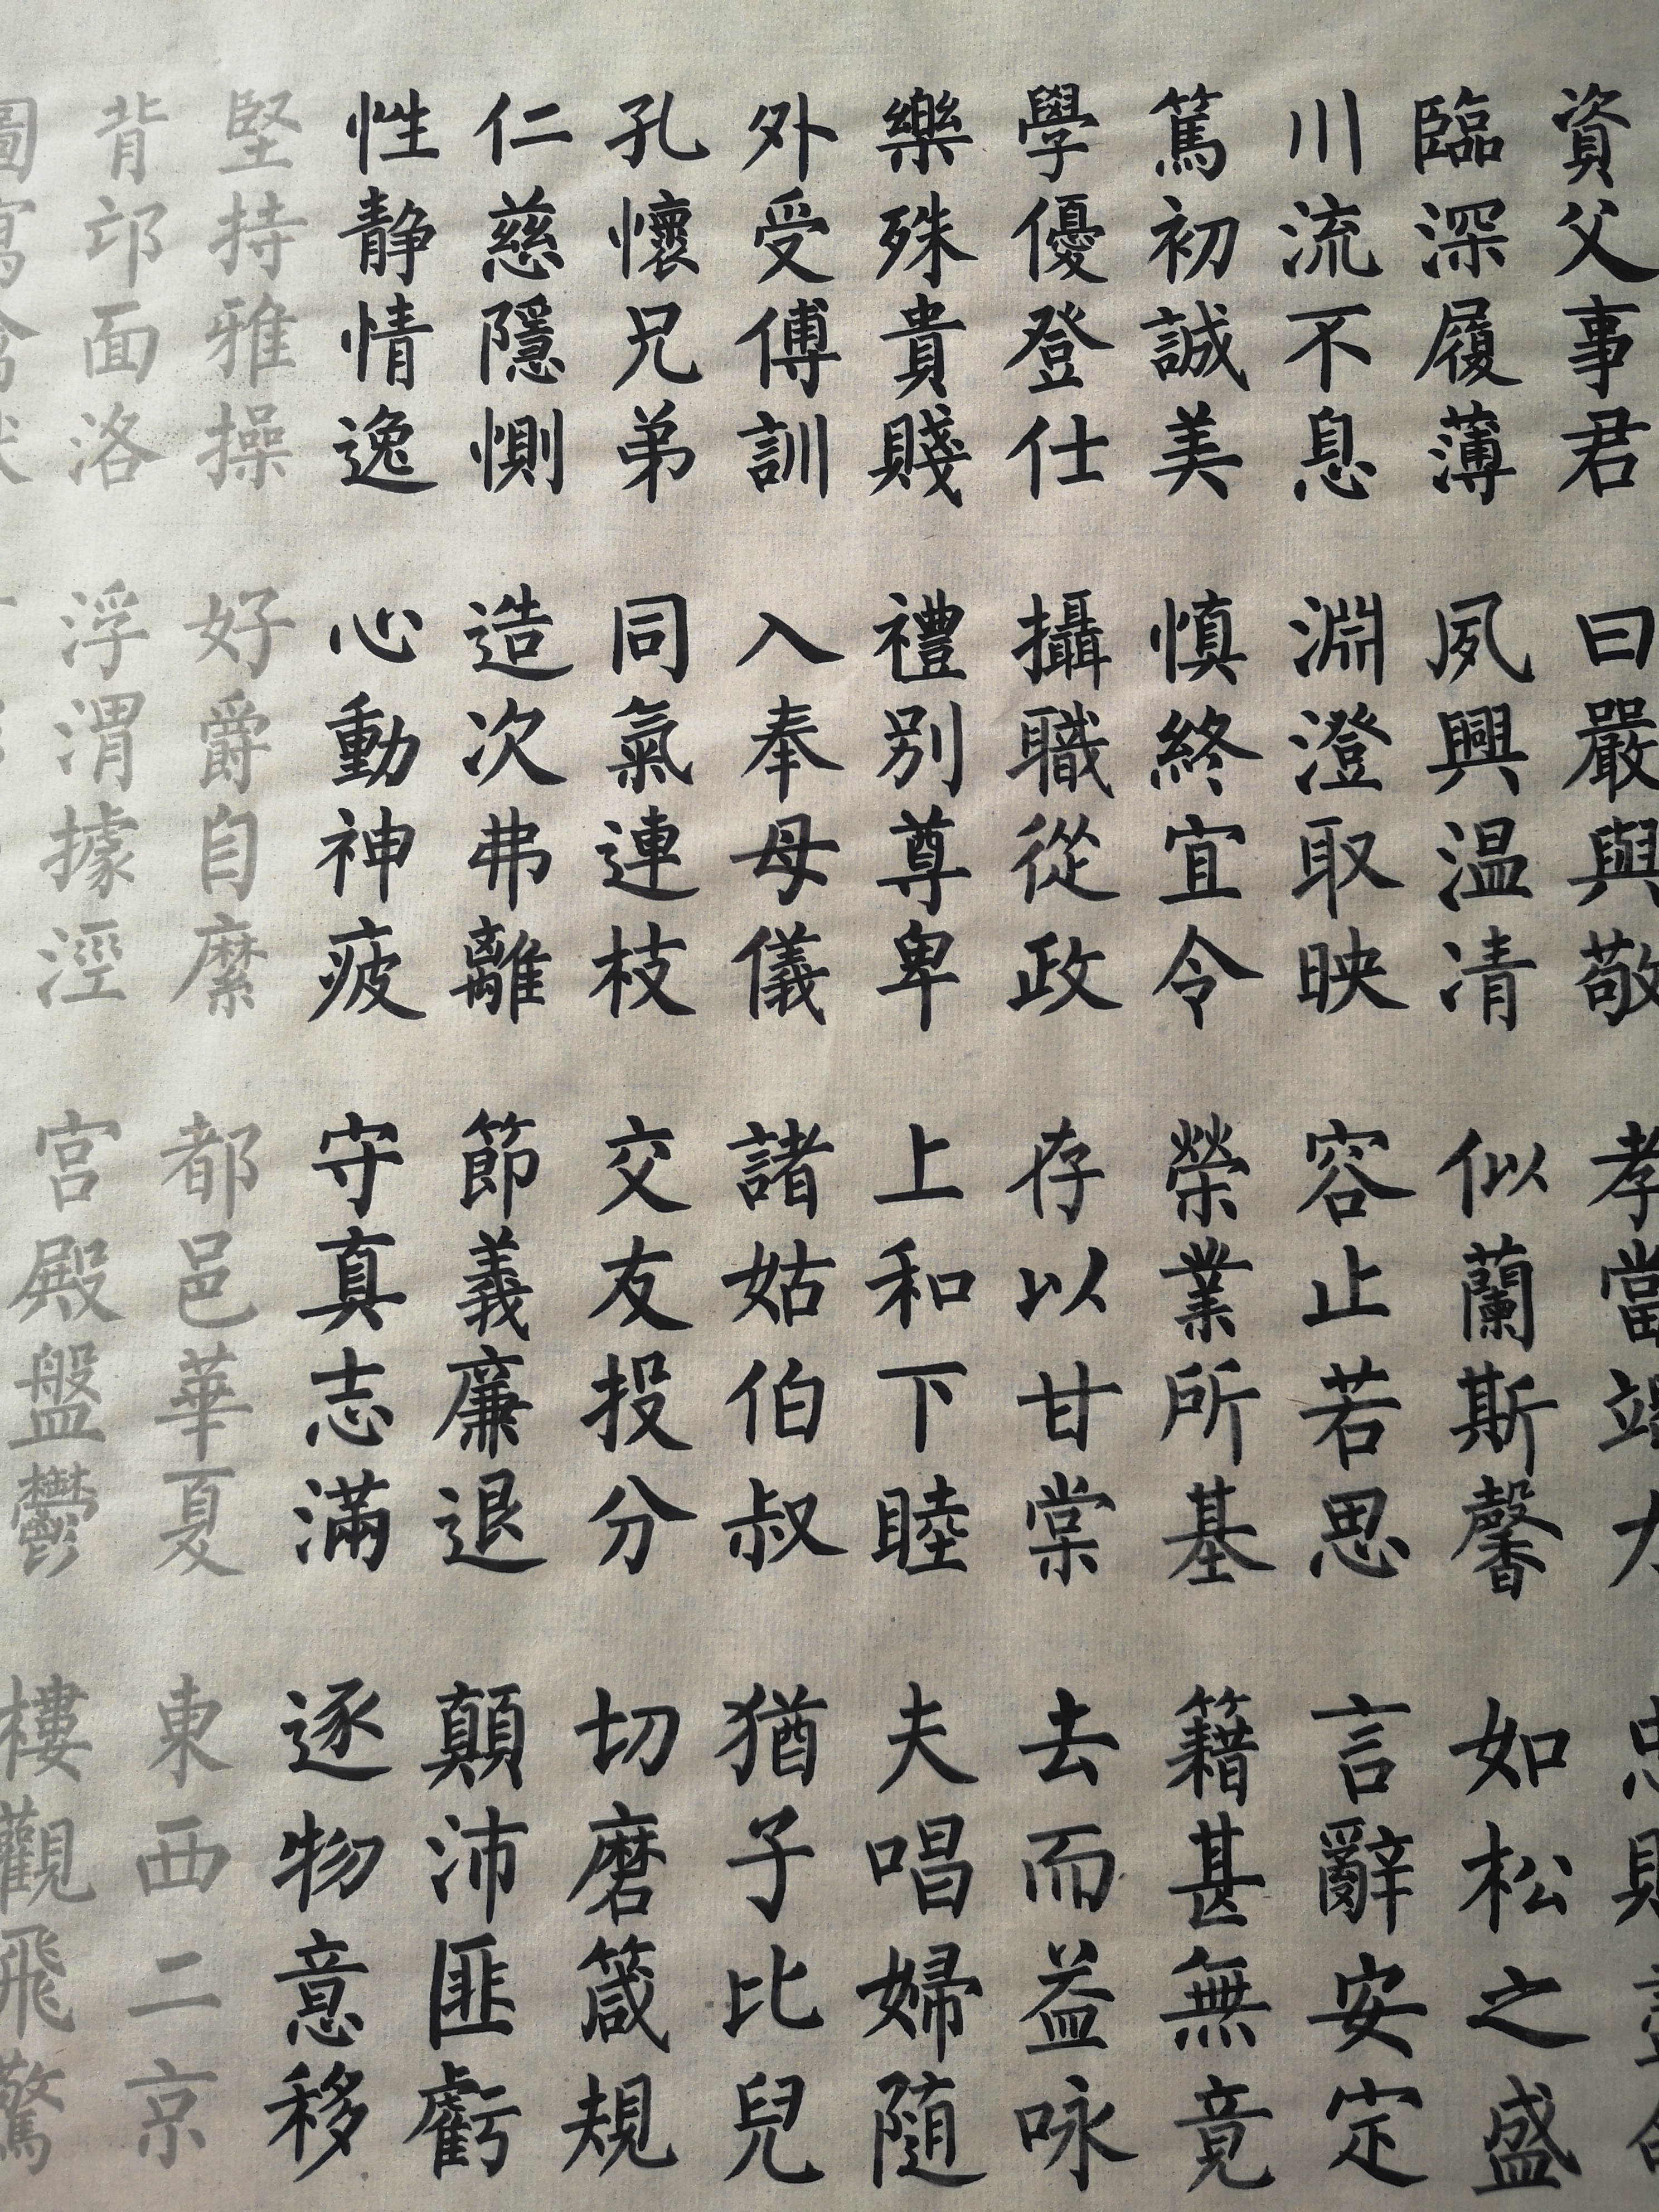 資父事君 曰嚴與敬 孝當竭力 忠則盡命
臨深履薄 夙興温凊 似蘭斯馨 如松之盛
川流不息 淵澄取映 容止若思 言辭安定
篤初誠美 慎終宜令 榮業所基 籍甚無竟
學優登仕 攝職從政 存以甘棠 去而益咏
樂殊貴賤 禮別尊卑 上和下睦 夫唱婦隨
外受傅訓 入奉母儀 諸姑伯叔 猶子比兒
孔懷兄弟 同氣連枝 交友投分 切磨箴規
仁慈隱惻 造次弗離 節義廉退 顛沛匪虧
性静情逸 心動神疲 守真志滿 逐物意移
堅持雅操 好爵自縻 都邑華夏 東西二京
背邙面洛 浮渭據涇 宮殿盤鬱 樓觀飛驚
圖寫